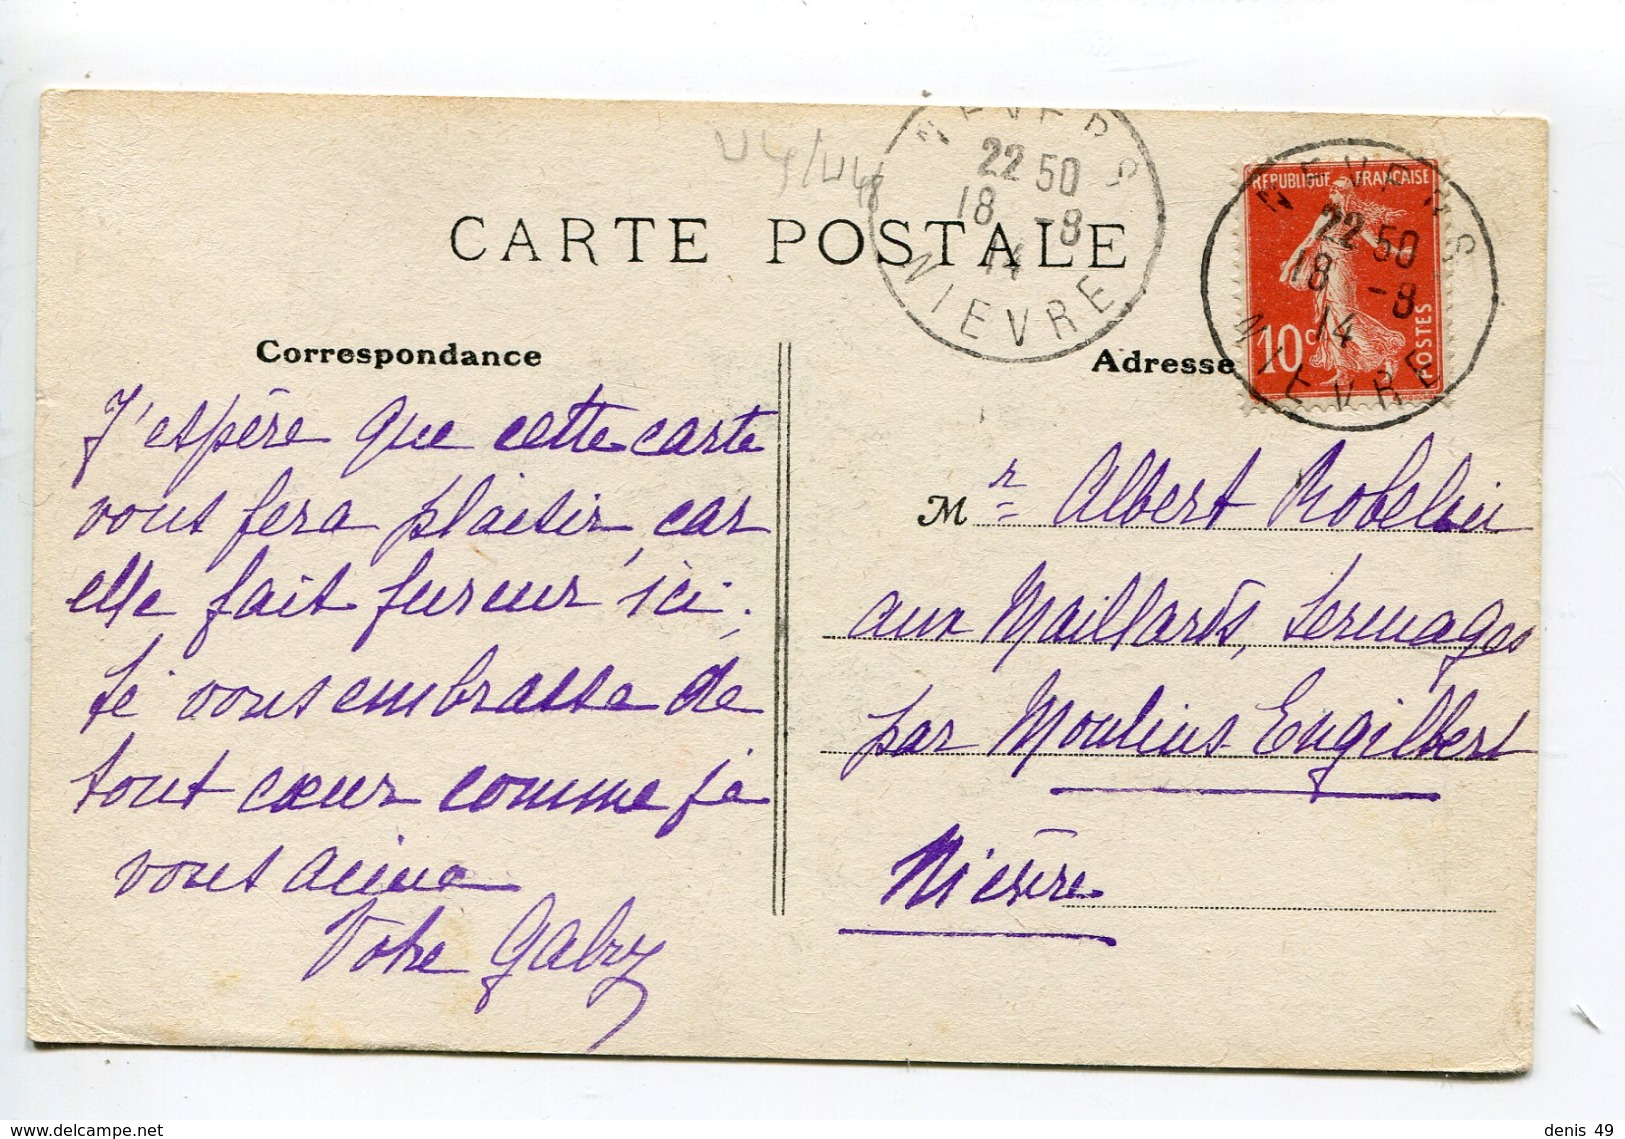 CARTE POSTALE
NEVERS
22 50
18 -8
14
NIEVRE
NEVERS
22 50
18 -8
14
NIEVRE
REPUBLIQUE FRANCAISE
10c
POSTES
Correspondance
J'espère que cette carte
vous fera plaisir, car
elle fait fureur ici.
Je vous embrasse de
tout cœur comme je
vous aime
Votre Gabry
Adresse
Mr Albert Robelin
aux Maillards, Sermages
par Moulins Engilbert
Nièvre
www.delcampe.net
denis 49